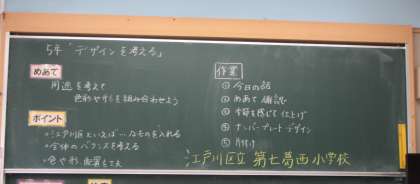 5年「デザインを考える」
めあて
用途を考えて
色彩や形を組み合わせよう
ポイント
・江戸川区といえば…なものを入れる
・全体のバランスを考える
・色や形、配置も工夫
作業
① 今日の話
② めあて 確認
③ 季節を感じて 仕上げ
⑤ ナンバープレートデザイン
⑤ 片付け
江戸川区立 第七葛西小学校